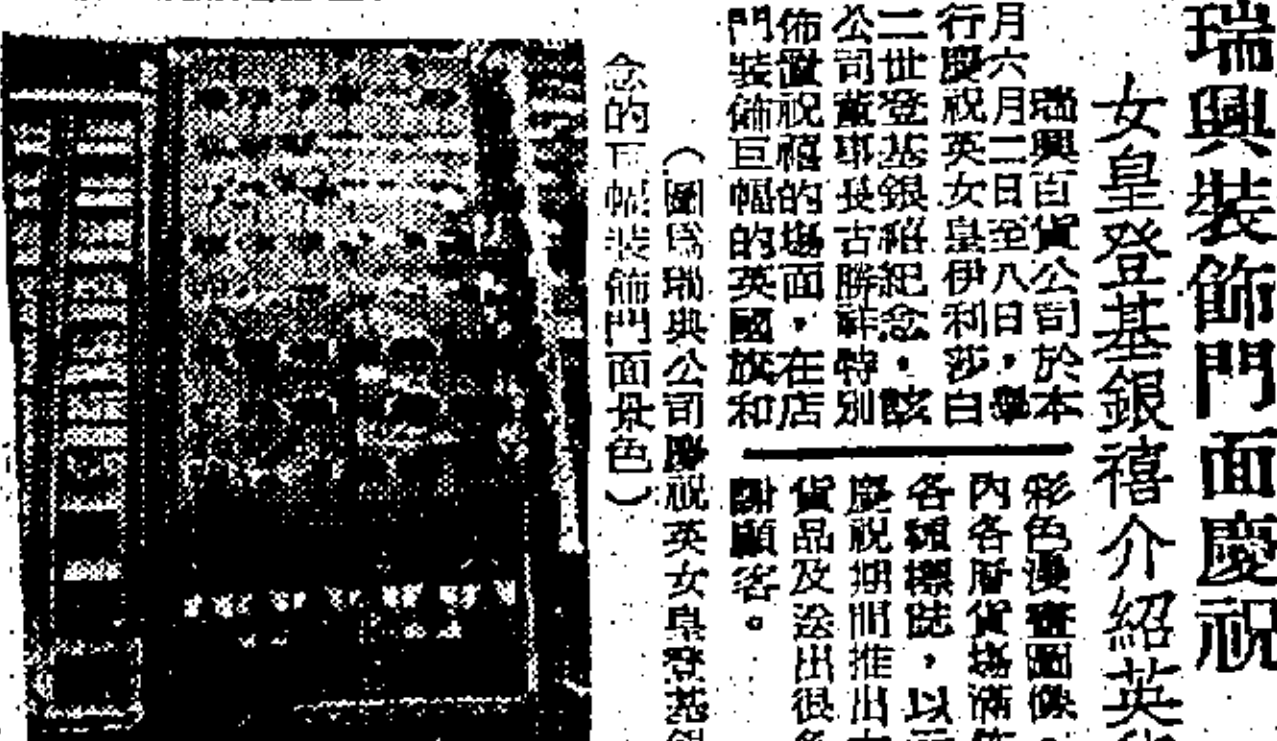 瑞興裝飾門面慶祝
女皇登基銀禧介紹英
瑞興百貨公司於本
月六月二日至八日，舉
行慶祝英女皇伊利莎白
二世登基銀禧紀念。該
公司董事長古勝祥特別
佈置祝禧的場面，在店
門裝飾巨幅的英國旗和
彩色漫畫圖像，
內各層貨場滿佈
各類標誌，以示
慶祝期間推出大
貨品及送出很多
謝顧客。
（圖爲瑞興公司慶祝英女皇登基銀
念的巨幅裝飾門面景色）